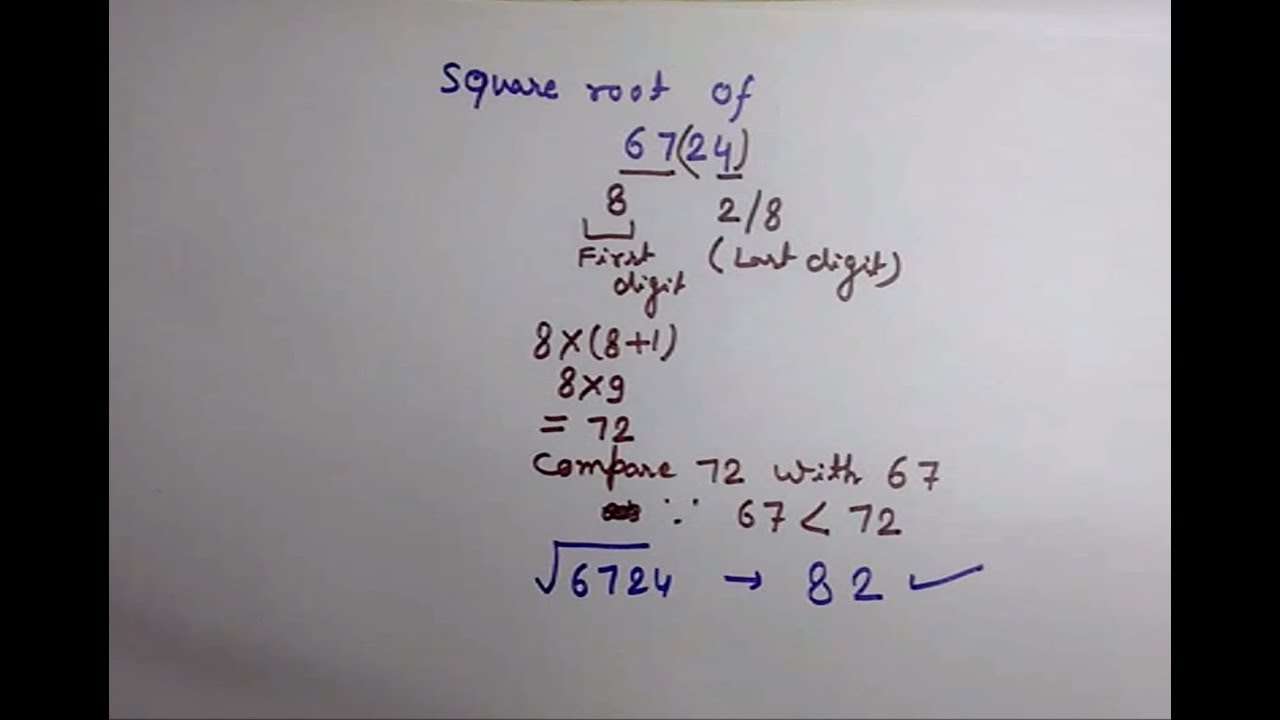 Square root of
67(24)
8 2/8
First digit (Last digit)
8×(8+1)
8×9
= 72
Compare 72 with 67
∵ 67 < 72
√6724 → 82 ✓